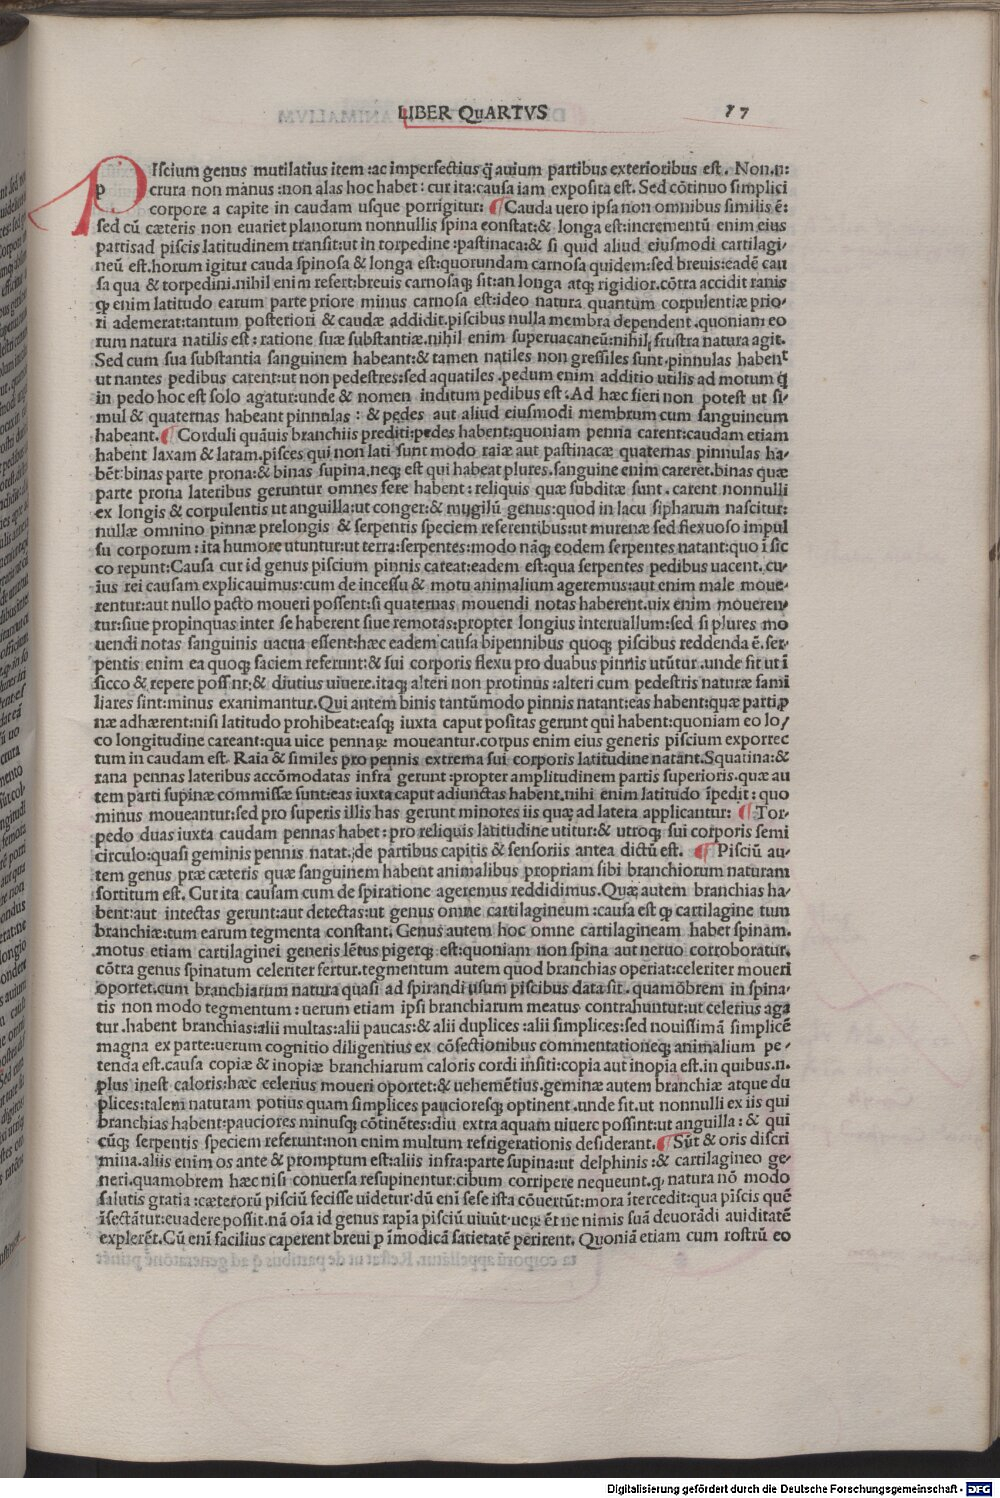 LIBER QuARTVS
17
PIscium genus mutilatius item :ac imperfectius q̃ auium partibus exterioribus est. Non.n:
p crura non manus :non alas hoc habet : cur ita:causa iam exposita est. Sed cõtinuo simplici
corpore a capite in caudam usque porrigitur: ¶ Cauda uero ipsa non omnibus similis ẽ:
sed cũ cæteris non euariet planorum nonnullis spina constat:& longa est:incrementũ enim eius
partis ad piscis latitudinem transit:ut in torpedine :pastinaca:& si quid aliud eiusmodi cartilagi-
neũ est.horum igitur cauda spinosa & longa est:quorundam carnosa quidem:sed breuis:eadẽ cau
sa qua & torpedini.nihil enim refert:breuis carnosaqꝫ sit:an longa atqꝫ rigidior.cõtra accidit ranis
ꝙ enim latitudo earum parte priore minus carnosa est:ideo natura quantum corpulentiæ prio-
ri ademerat:tantum posteriori & caudæ addidit.piscibus nulla membra dependent.quoniam eo
rum natura natilis est: ratione suæ substantiæ.nihil enim superuacaneũ:nihil frustra natura agit.
Sed cum sua substantia sanguinem habeant:& tamen natiles non gressiles sunt.pinnulas habent
ut nantes pedibus carent:ut non pedestres:sed aquatiles .pedum enim additio utilis ad motum q̃
in pedo hoc est solo agatur:unde & nomen inditum pedibus est: Ad hæc fieri non potest ut si-
mul & quaternas habeant pinnulas : & pedes aut aliud eiusmodi membrum cum sanguineum
habeant. ¶ Corduli quãuis branchiis prediti:pedes habent:quoniam penna carent:caudam etiam
habent laxam & latam.pisces qui non lati sunt modo raiæ aut pastinacæ quaternas pinnulas ha-
bẽt:binas parte prona:& binas supina.neqꝫ est qui habeat plures.sanguine enim careret.binas quæ
parte prona lateribus geruntur omnes fere habent: reliquis quæ subditæ sunt. carent nonnulli
ex longis & corpulentis ut anguilla:ut conger:& mugilũ genus:quod in lacu sipharum nascitur:
nullæ omnino pinnæ prelongis & serpentis speciem referentibus:ut murenæ sed flexuoso impul
su corporum : ita humore utuntur:ut terra:serpentes:modo nãqꝫ eodem serpentes natant:quo ĩ sic
co repunt: Causa cur id genus piscium pinnis careat:eadem est:qua serpentes pedibus uacent.cu-
ius rei causam explicauimus:cum de incessu & motu animalium ageremus:aut enim male moue-
rentur:aut nullo pacto moueri possent:si quaternas mouendi notas haberent.uix enim moueren-
tur:siue propinquas inter se haberent siue remotas:propter longius interuallum:sed si plures mo
uendi notas sanguinis uacua essent:hæc eadem causa bipennibus quoqꝫ piscibus reddenda ẽ.ser-
pentis enim ea quoqꝫ faciem referunt:& sui corporis flexu pro duabus pinnis utũtur.unde fit ut ĩ
sicco & repere possnt:& diutius uiuere.itaqꝫ alteri non protinus :alteri cum pedestris naturæ fami
liares sint:minus exanimantur.Qui autem binis tantũmodo pinnis natant:eas habent:quæ parti ꝓ
næ adhærent:nisi latitudo prohibeat:easqꝫ iuxta caput positas gerunt qui habent:quoniam eo lo/
co longitudine careant:qua uice pennaꝝ moueantur.corpus enim eius generis piscium exporrec
tum in caudam est. Raia & similes pro pennis extrema sui corporis latitudine natant.Squatina:&
rana pennas lateribus accõmodatas infra gerunt :propter amplitudinem partis superioris.quæ au
tem parti supinæ commissæ sunt:eas iuxta caput adiunctas habent.nihi enim latitudo ĩpedit: quo
minus moueantur:sed pro superis illis has gerunt minores iis quæ ad latera applicantur: ¶ Tor-
pedo duas iuxta caudam pennas habet: pro reliquis latitudine utitur:& utroqꝫ sui corporis semi
circulo:quasi geminis pennis natat.;de partibus capitis & sensoriis antea dictũ est. ¶ Pisciũ au-
tem genus præ cæteris quæ sanguinem habent animalibus propriam sibi branchiorum naturam
sortitum est. Cur ita causam cum de spiratione ageremus reddidimus.Quæ autem branchias ha-
bent:aut intectas gerunt:aut detectas:ut genus omne cartilagineum :causa est ꝙ cartilagine tum
branchiæ:tum earum tegmenta constant. Genus autem hoc omne cartilagineam habet spinam.
motus etiam cartilaginei generis lẽtus pigerqꝫ est:quoniam non spina aut neruo corroboratur.
cõtra genus spinatum celeriter fertur.tegmentum autem quod branchias operiat:celeriter moueri
oportet.cum branchiarum natura quasi ad spirandi usum piscibus data sit. quamõbrem in spina-
tis non modo tegmentum : uerum etiam ipsi branchiarum meatus contrahuntur:ut celerius aga
tur .habent branchias:alii multas:alii paucas:& alii duplices :alii simplices:sed nouissimã simplicẽ
magna ex parte:uerum cognitio diligentius ex cõfectionibus commentationeqꝫ animalium pe-
tenda est.causa copiæ & inopiæ branchiarum caloris cordi insiti:copia aut inopia est.in quibus.n.
plus inest caloris:hæc celerius moueri oportet:& uehemẽtius.geminæ autem branchiæ atque du
plices:talem naturam potius quam simplices paucioresqꝫ optinent.unde fit.ut nonnulli ex iis qui
branchias habent:pauciores minusqꝫ cõtinẽtes:diu extra aquam uiuere possint:ut anguilla: & qui
cũqꝫ serpentis speciem referunt:non enim multum refrigerationis desiderant. ¶ Sũt & oris discri
mina.aliis enim os ante & promptum est:aliis infra:parte supina:ut delphinis :& cartilagineo ge-
neri.quamobrem hæc nisi conuersa resupinentur:cibum corripere nequeunt.ꝙ natura nõ modo
salutis gratia :cæterorũ pisciũ fecisse uidetur:dũ enĩ sese ista cõuertũt:mora ĩtercedit:qua piscis quẽ
ĩsectãtur:euadere possit.nã oĩa id genus rapĩa pisciũ uiuũt:ueꝝ ẽt ne nimis suã deuorãdi auiditatẽ
explerẽt.Cũ enĩ facilius caperent breui ꝑ ĩmodicã satietatẽ perirent. Quoniã etiam cum rostrũ eo
Digitalisierung gefördert durch die Deutsche Forschungsgemeinschaft - DFG